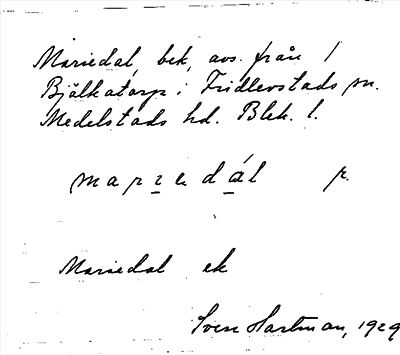 Mariedal, bek, avs. från 1
Björkatorp i Fridlevstads sn.
Medelstads hd. Blek. l.
marɩedál p.
Mariedal ek
Sven Hartman, 1929